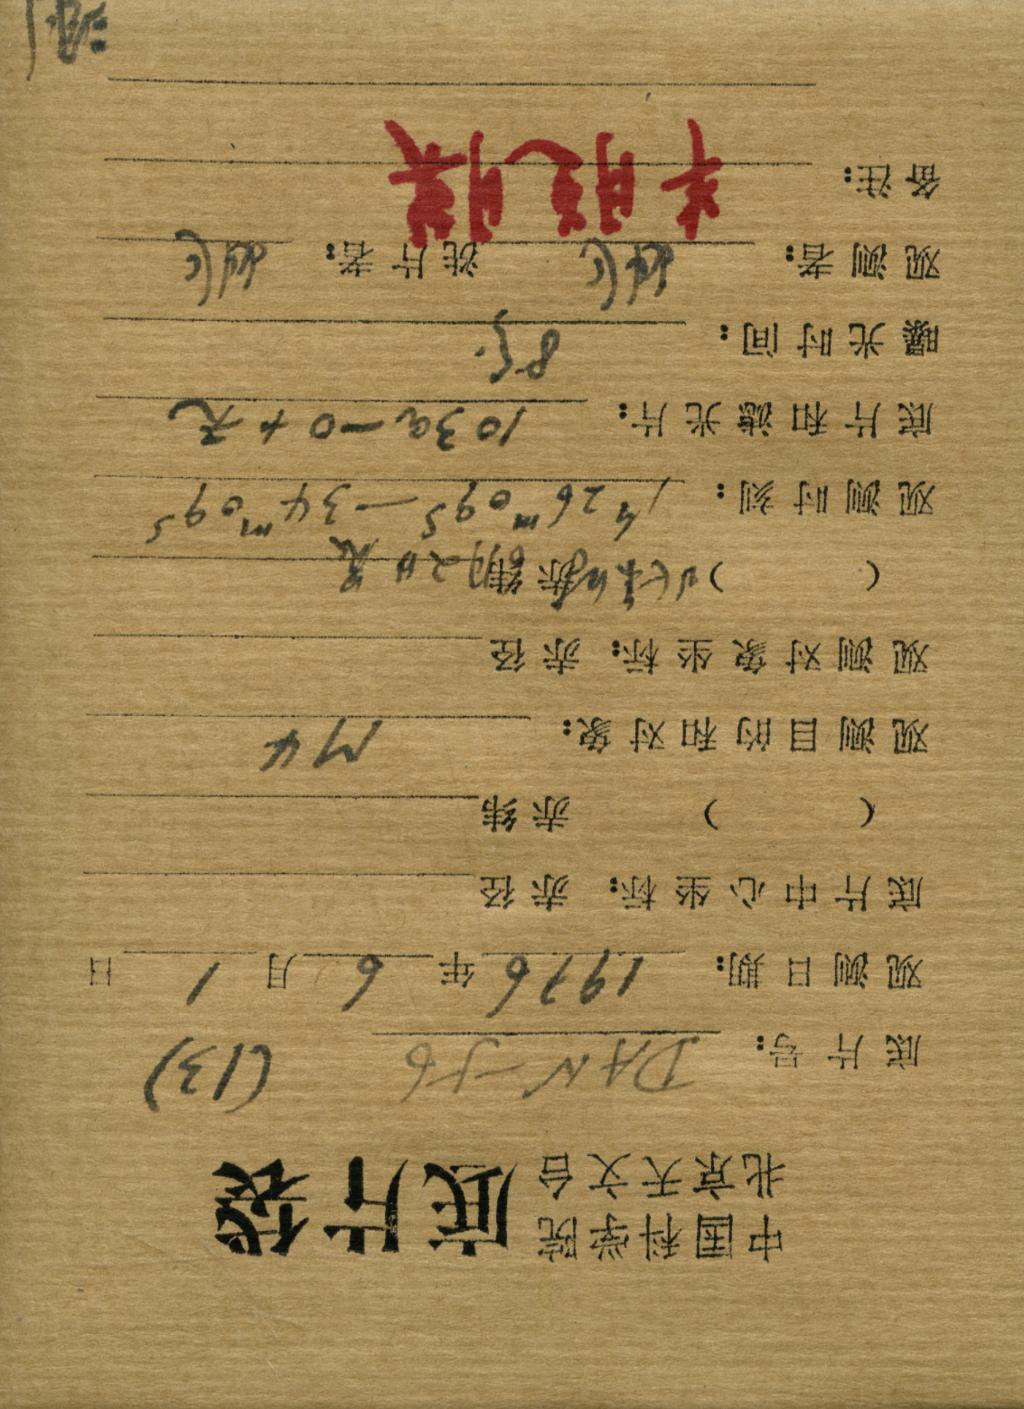 中国科学院
北京天文台
底片袋
底片号: DAN-56 (13)
观测日期: 1976年6月1日
底片中心坐标: 赤径
( ) 赤纬
观测目的和对象: M4
观测对象坐标: 赤径
( ) 赤纬
观测时刻: 1h26m09s—34m09s
底片和滤光片: 103a-O+无
曝光时间: 8分
观测者: 洗片者:
备注: 未脱膜